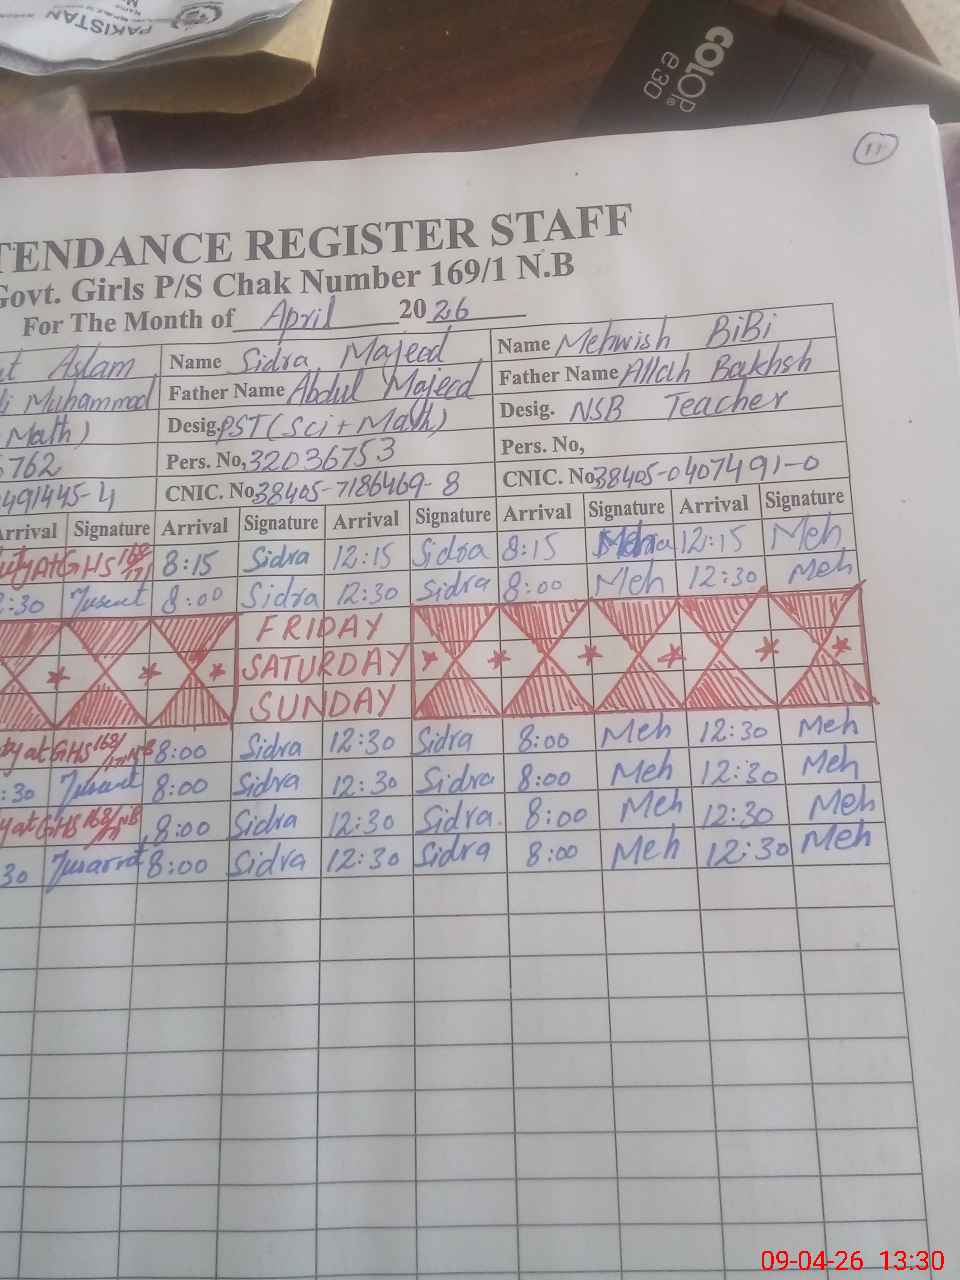 PAKISTAN
COLOP
e30
11
TENDANCE REGISTER STAFF
Govt. Girls P/S Chak Number 169/1 N.B
For The Month of April 2026
Aslam Name Sidra Majeed Name Mehwish BiBi
Muhammad Father Name Abdul Majeed Father Name Allah Bakhsh
Math) Desig. PST (Sci + Math) Desig. NSB Teacher
762 Pers. No, 32036753 Pers. No,
491445-4 CNIC. No. 38405-7186469-8 CNIC. No. 38405-0407491-0
Arrival Signature Arrival Signature Arrival Signature Arrival Signature Arrival Signature
At GHS 168/171 8:15 Sidra 12:15 Sidra 8:15 12:15 Meh
:30 8:00 Sidra 12:30 Sidra 8:00 Meh 12:30 Meh
FRIDAY
SATURDAY
SUNDAY
at GHS 168/171NB 8:00 Sidra 12:30 Sidra 8:00 Meh 12:30 Meh
:30 8:00 Sidra 12:30 Sidra 8:00 Meh 12:30 Meh
at GHS 168/171NB 8:00 Sidra 12:30 Sidra 8:00 Meh 12:30 Meh
30 8:00 Sidra 12:30 Sidra 8:00 Meh 12:30 Meh
09-04-26 13:30